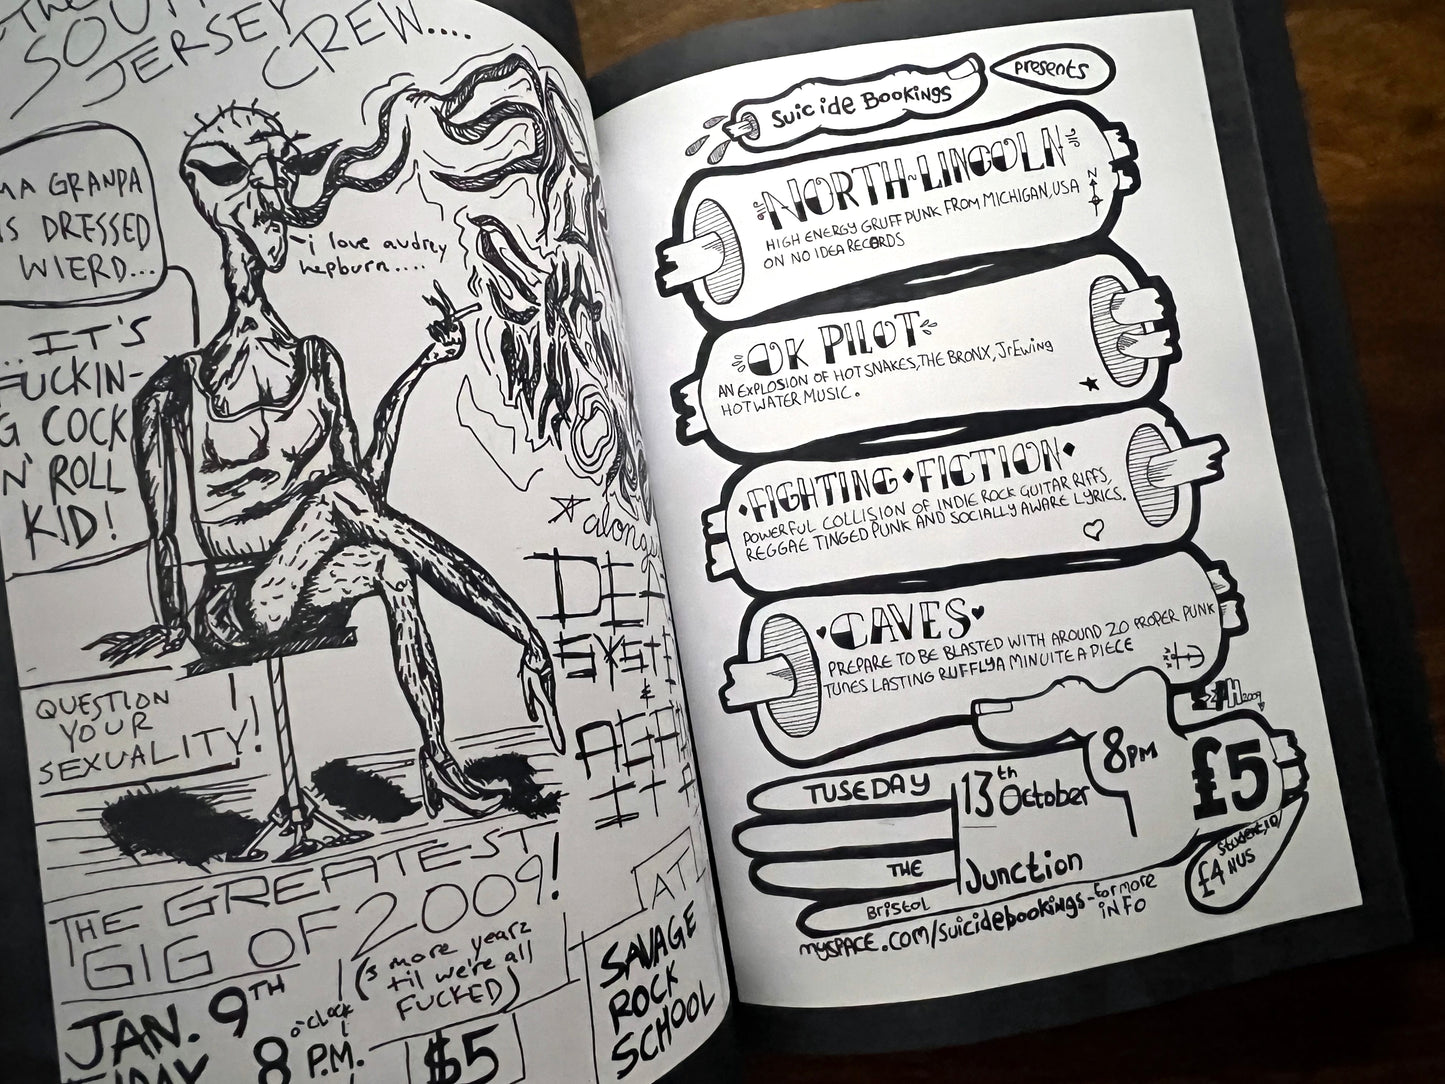 SOUTH
JERSEY
CREW....
MA GRANPA
IS DRESSED
WIERD...
...IT'S
FUCKIN-
G COCK
N' ROLL
KID!
-i love audrey
hepburn....
QUESTION
YOUR
SEXUALITY!
THE GREATEST
GIG OF 2009!
('3 more yearz
'til we're all
FUCKED)
JAN. 9TH
8 o'clock
P.M.
$5
SAVAGE
ROCK
SCHOOL
Suicide Bookings
presents
NORTH-LINCOLN
N
HIGH ENERGY GRUFF PUNK FROM MICHIGAN, USA
ON NO IDEA RECORDS
OK PILOT
AN EXPLOSION OF HOT SNAKES, THE BRONX, JrEwing
HOT WATER MUSIC.
FIGHTING FICTION
POWERFUL COLLISION OF INDIE ROCK GUITAR RIFFS,
REGGAE TINGED PUNK AND SOCIALLY AWARE LYRICS.
CAVES
PREPARE TO BE BLASTED WITH AROUND 20 PROPER PUNK
TUNES LASTING RUFFLY A MINUITE A PIECE
2009
TUSEDAY
13th October
8PM
£5
THE
Junction
Student ID/
£4 NUS
Bristol
myspace.com/suicidebookings-for more
iNFO